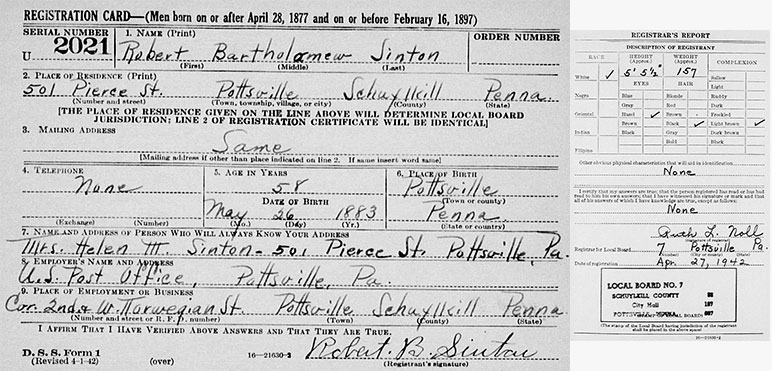 REGISTRATION CARD—(Men born on or after April 28, 1877 and on or before February 16, 1897)
SERIAL NUMBER
1. NAME (Print)
ORDER NUMBER
U 2021
Robert Bartholomew Sinton
(First) (Middle) (Last)
2. PLACE OF RESIDENCE (Print)
501 Pierce St. Pottsville Schuylkill Penna
(Number and street) (Town, township, village, or city) (County) (State)
[THE PLACE OF RESIDENCE GIVEN ON THE LINE ABOVE WILL DETERMINE LOCAL BOARD
JURISDICTION; LINE 2 OF REGISTRATION CERTIFICATE WILL BE IDENTICAL]
3. MAILING ADDRESS
Same
[Mailing address if other than place indicated on line 2. If same insert word same]
4. TELEPHONE
5. AGE IN YEARS
6. PLACE OF BIRTH
None
58
Pottsville
DATE OF BIRTH
(Town or county)
May 26 1883
Penna
(Exchange) (Number)
(Mo.) (Day) (Yr.)
(State or country)
7. NAME AND ADDRESS OF PERSON WHO WILL ALWAYS KNOW YOUR ADDRESS
Mrs. Helen M. Sinton - 501 Pierce St. Pottsville, Pa.
8. EMPLOYER'S NAME AND ADDRESS
U.S. Post Office, Pottsville, Pa.
9. PLACE OF EMPLOYMENT OR BUSINESS
Cor. 2nd & W. Norwegian St. Pottsville Schuylkill Penna
(Number and street or R. F. D. number) (Town) (County) (State)
I AFFIRM THAT I HAVE VERIFIED ABOVE ANSWERS AND THAT THEY ARE TRUE.
D. S. S. Form 1
(Revised 4-1-42) (over) 16—21630-2
Robert B. Sinton
(Registrant's signature)
REGISTRAR'S REPORT
DESCRIPTION OF REGISTRANT
RACE
HEIGHT (Approx.)
WEIGHT (Approx.)
COMPLEXION
White ✓
5' 5½"
157
Sallow
Light
EYES
HAIR
Negro
Blue
Blonde
Ruddy
Gray
Red
Dark
Oriental
Hazel ✓
Brown
Freckled
Brown
Black ✓
Light brown ✓
Indian
Black
Gray
Dark brown
Bald
Black
Filipino
Other obvious physical characteristics that will aid in identification
None
I certify that my answers are true; that the person registered has read or has had
read to him his own answers; that I have witnessed his signature or mark and that
all of his answers of which I have knowledge are true, except as follows:
None
Ruth L. Noll
Registrar for Local Board 7 Pottsville Pa.
Date of registration Apr. 27, 1942
LOCAL BOARD NO. 7
SCHUYLKILL COUNTY
City Hall
POTTSVILLE, PENNA.
(The stamp of the Local Board having jurisdiction of the registrant
shall be placed in the above space)
16—21630-2